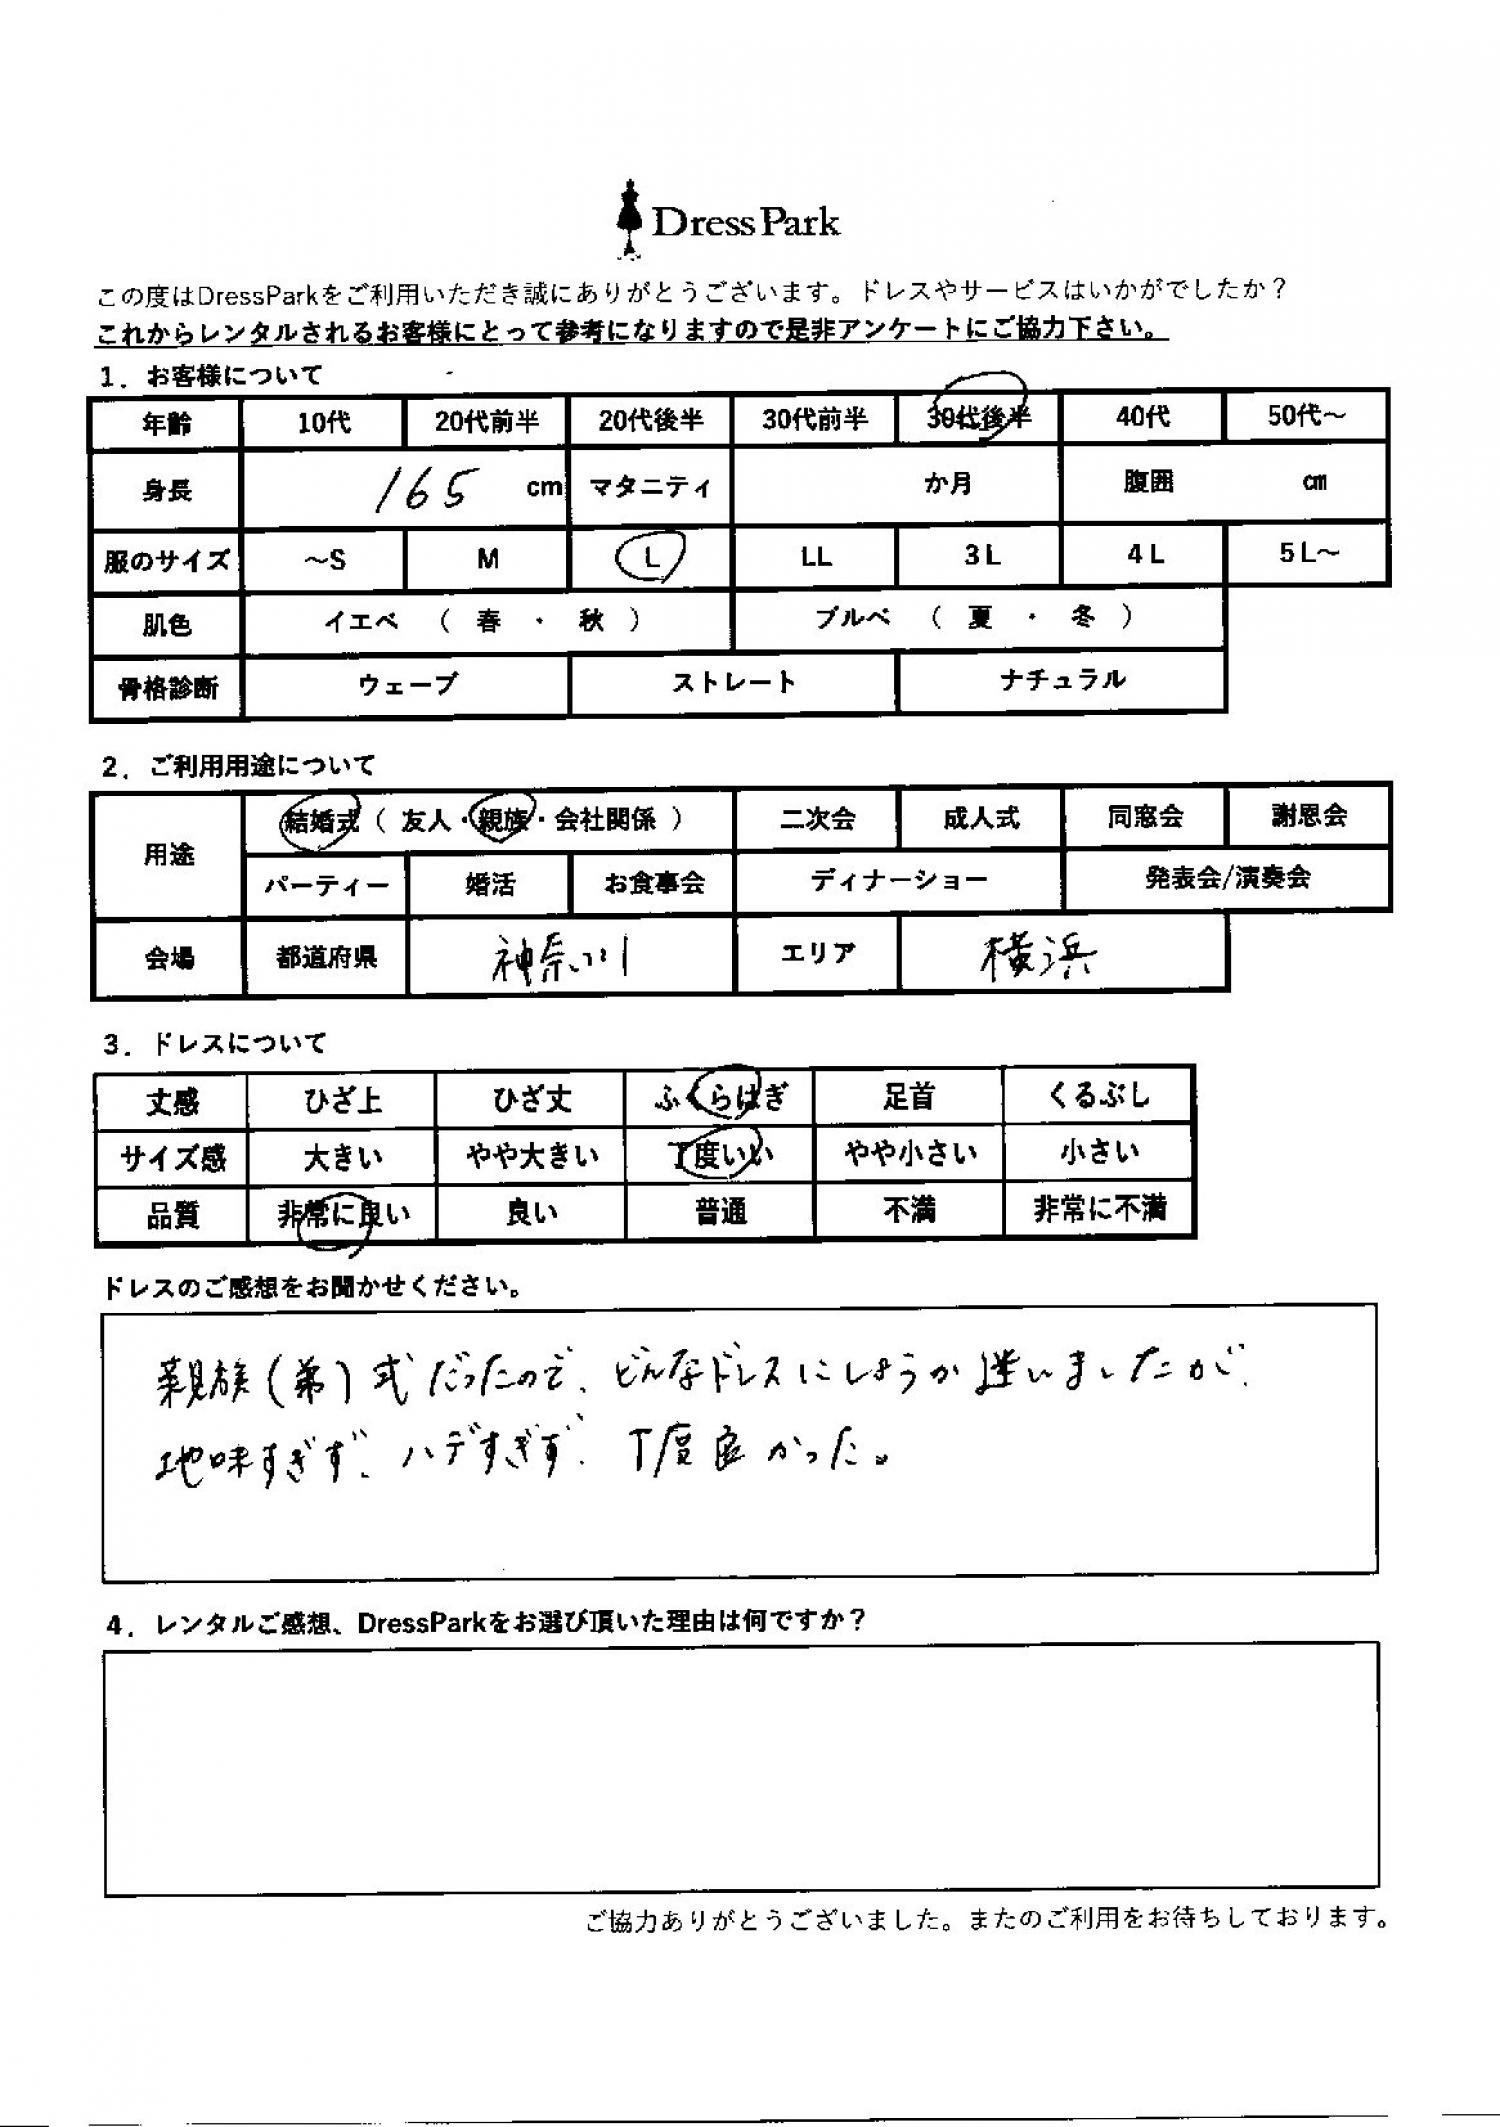 Dress Park
この度はDressParkをご利用いただき誠にありがとうございます。ドレスやサービスはいかがでしたか？
これからレンタルされるお客様にとって参考になりますので是非アンケートにご協力下さい。
1．お客様について
年齢 10代 20代前半 20代後半 30代前半 30代後半 40代 50代～
身長 165 cm マタニティ か月 腹囲 cm
服のサイズ ～S M L LL 3L 4L 5L～
肌色 イエベ （ 春 ・ 秋 ） ブルベ （ 夏 ・ 冬 ）
骨格診断 ウェーブ ストレート ナチュラル
2．ご利用用途について
用途 結婚式（ 友人・親族・会社関係 ） 二次会 成人式 同窓会 謝恩会
パーティー 婚活 お食事会 ディナーショー 発表会/演奏会
会場 都道府県 神奈川 エリア 横浜
3．ドレスについて
丈感 ひざ上 ひざ丈 ふくらはぎ 足首 くるぶし
サイズ感 大きい やや大きい 丁度いい やや小さい 小さい
品質 非常に良い 良い 普通 不満 非常に不満
ドレスのご感想をお聞かせください。
親族（弟）式だったので、どんなドレスにしようか迷いましたが、
地味すぎず、ハデすぎず、丁度良かった。
4．レンタルご感想、DressParkをお選び頂いた理由は何ですか？
ご協力ありがとうございました。またのご利用をお待ちしております。